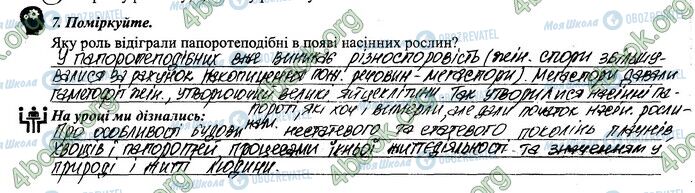 7. Поміркуйте.
Яку роль відіграли папоротеподібні в появі насінних рослин?
У папоротеподібних вже виникає різноспоровість (жін. спори збільшу-
валися за рахунок накопиченої пож. речовин - мегаспори). Мегаспори давали
гаметофіт жін., утворюючи великі яйцеклітини. Так утворилися насінні па-
пороті, які хоч і вимерли, але дали початок насін. росли-
нам.
На уроці ми дізнались:
Про особливості будови нестатевого та статевого поколінь плаунів
хвощів і папоротей процесами їхньої життєдіяльності та значенням у
природі і житті людини.